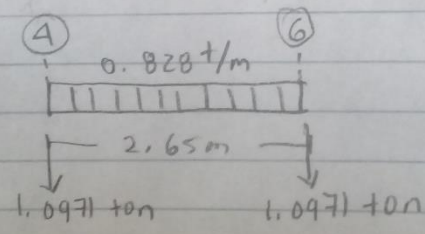 4 6
0.828 t/m
2.65m
1.0971 ton 1.0971 ton